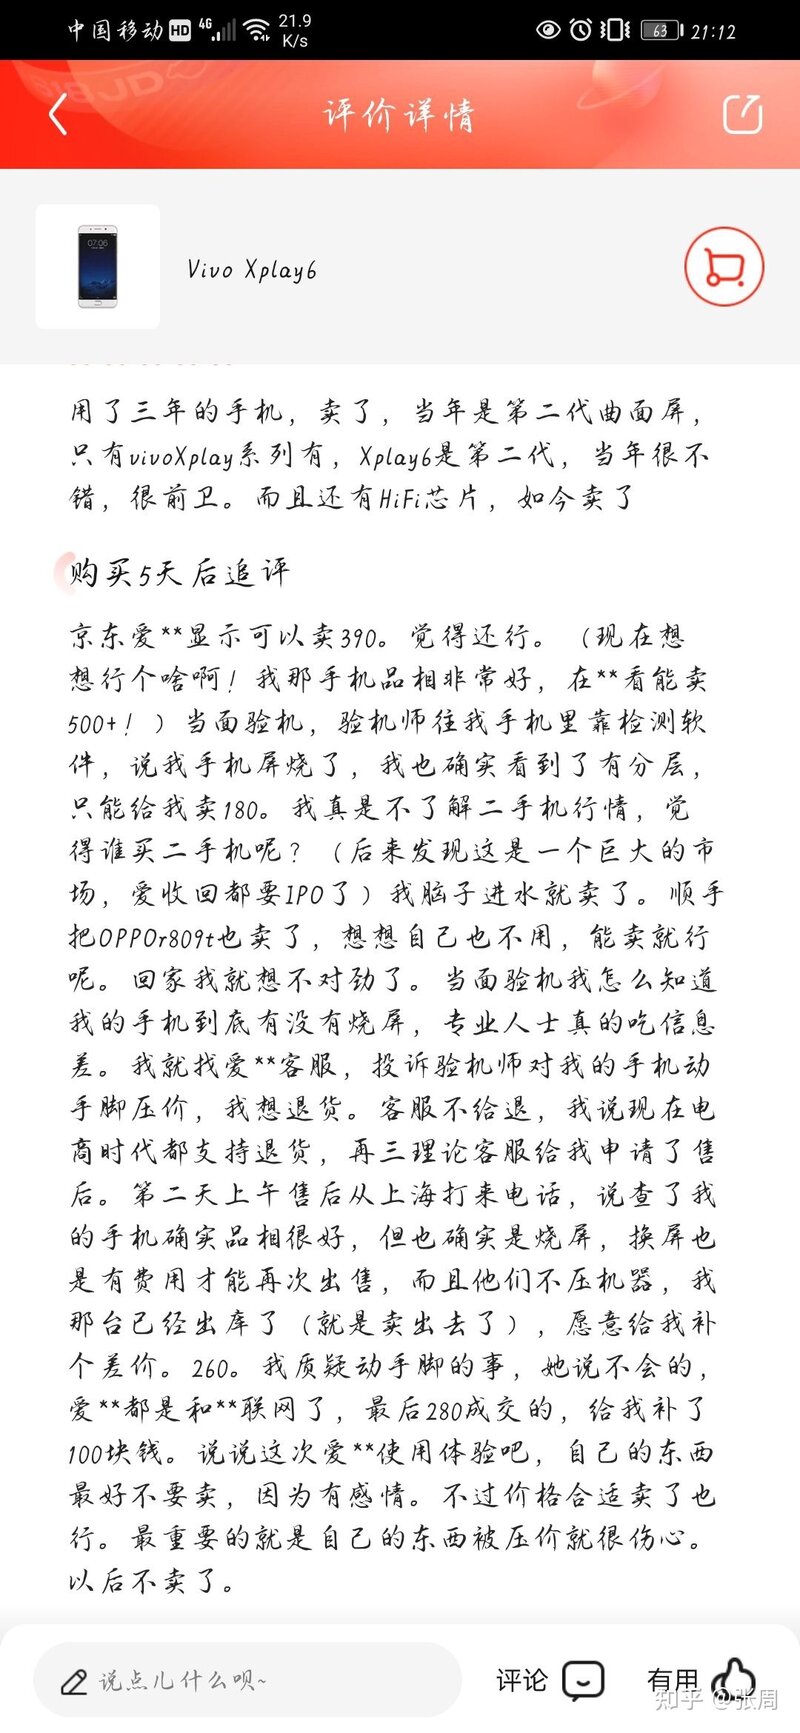 中国移动 HD 4G 21.9 K/s 63 21:12
评价详情
07:06
Vivo Xplay6
用了三年的手机，卖了，当年是第二代曲面屏，
只有vivoXplay系列有，Xplay6是第二代，当年很不
错，很前卫。而且还有HiFi芯片，如今卖了
购买5天后追评
京东爱**显示可以卖390。觉得还行。（现在想
想行个啥啊！我那手机品相非常好，在**看能卖
500+！）当面验机，验机师往我手机里靠检测软
件，说我手机屏烧了，我也确实看到了有分层，
只能给我卖180。我真是不了解二手机行情，觉
得谁买二手机呢？（后来发现这是一个巨大的市
场，爱收回都要IPO了）我脑子进水就卖了。顺手
把OPPOr809t也卖了，想想自己也不用，能卖就行
呢。回家我就想不对劲了。当面验机我怎么知道
我的手机到底有没有烧屏，专业人士真的吃信息
差。我就找爱**客服，投诉验机师对我的手机动
手脚压价，我想退货。客服不给退，我说现在电
商时代都支持退货，再三理论客服给我申请了售
后。第二天上午售后从上海打来电话，说查了我
的手机确实品相很好，但也确实是烧屏，换屏也
是有费用才能再次出售，而且他们不压机器，我
那台已经出库了（就是卖出去了），愿意给我补
个差价。260。我质疑动手脚的事，她说不会的，
爱**都是和**联网了，最后280成交的，给我补了
100块钱。说说这次爱**使用体验吧，自己的东西
最好不要卖，因为有感情。不过价格合适卖了也
行。最重要的就是自己的东西被压价就很伤心。
以后不卖了。
说点儿什么呗~ 评论 有用
知乎 @张周